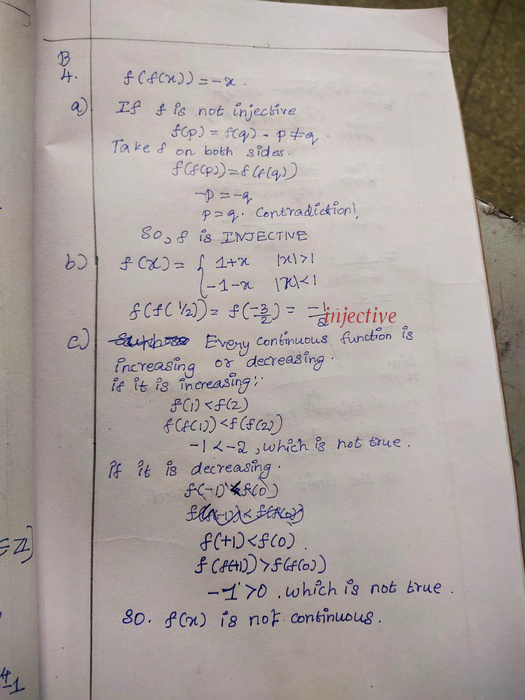 B
4. f(f(x)) = -x.
a) If f is not injective
f(p) = f(q) - p ≠ q.
Take f on both sides.
f(f(p)) = f(f(q))
-p = -q
p = q. Contradiction!,
SO, f is INJECTIVE
b) f(x) = { 1+x |x|>1
-1-x |x|<1
f(f(1/2)) = f(-3/2) = -1/2
injective
c) Every continuous function is
increasing or decreasing.
if it is increasing:
f(1) < f(2)
f(f(1)) < f(f(2))
-1 < -2, which is not true.
if it is decreasing.
f(-1) < f(0)
f(f(-1)) < f(f(0))
f(+1) < f(0).
f(f(+1)) > f(f(0))
-1 > 0. which is not true.
SO. f(x) is not continuous.
∈ Z]
4-1